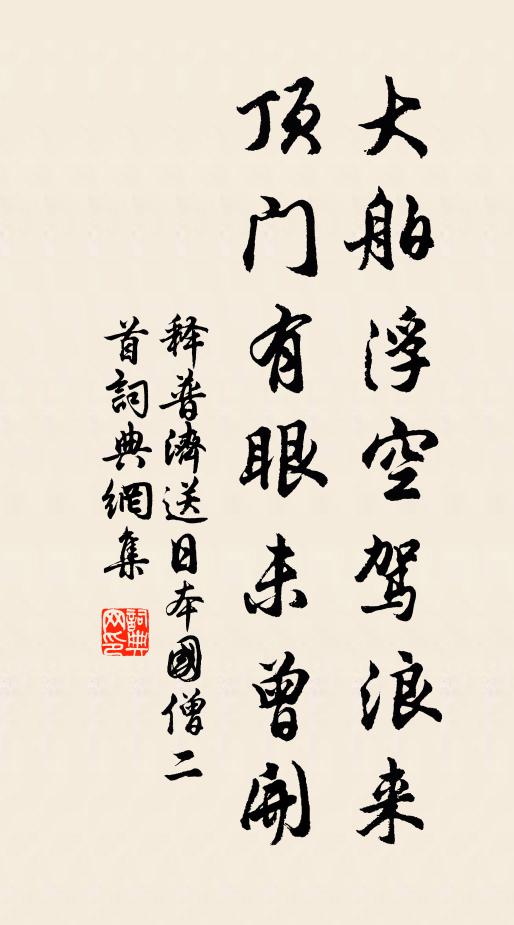 大舶浮空驾浪来
顶门有眼未曾開
释普濟送日本國僧二
首詞典網集
詞典
网印